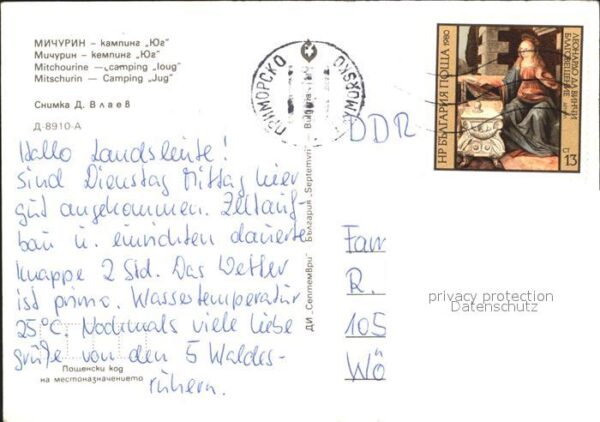 МИЧУРИН – кампинг „Юг"
Мичурин – кемпинг „Юг"
Mitchourine — camping „Ioug"
Mitschurin — Camping „Jug"
Снимка Д. Влаев
Д-8910-А
Hallo Landsleute!
Sind Dienstag Mittag hier
gut angekommen. Zeltauf-
bau u. einrichten dauerte
knappe 2 Std. Das Wetter
ist prima. Wassertemperatur
25°C. Nochmals viele liebe
Grüße von den 5 Waldes-
rühern.
Пощенски код
на местоназначението
ДИ „Септември" България „Septemvri"
ПРИМОРСКО
НР БЪЛГАРИЯ ПОЩА 1980
ЛЕОНАРДО ДА ВИНЧИ
БЛАГОВЕЩЕНИЕ
СТ 13
DDR
Fam
R.
105
Wö
privacy protection
Datenschutz